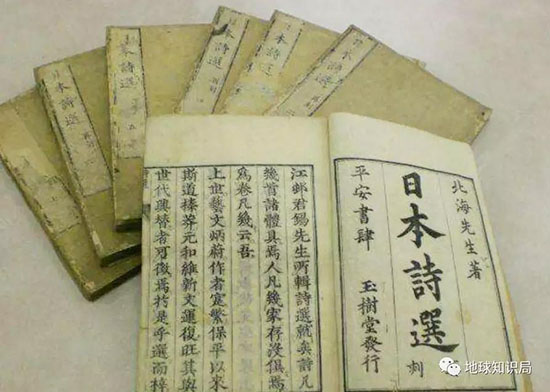 日本詩選
日本詩選
本詩選
日本詩選
日本詩選
日本詩選
北海先生著
日本詩選
刻
平安書肆 玉樹堂發行
江邨君錫先生所輯詩選就矣詩凡
幾首諸體具焉人凡幾家存沒焉
為卷凡幾云吾
上世藝文炳蔚作者寔繁保平以來
斯道榛莽元和維新文運復旺其與
世代興替者可復焉於是乎選而梓
地球知识局